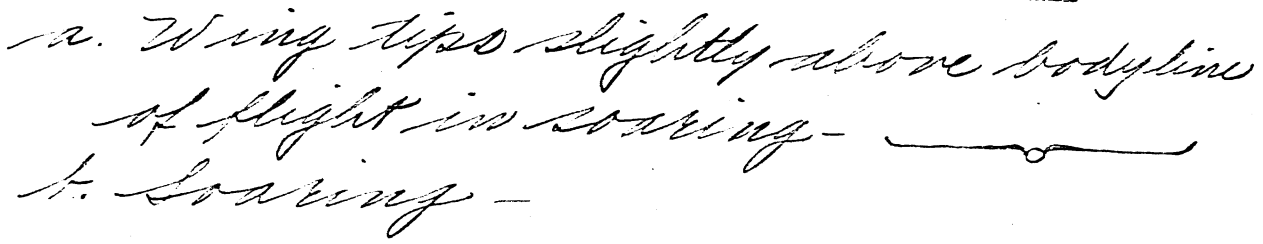 a. Wing tips slightly above bodyline
of flight in soaring-
b. Soaring -